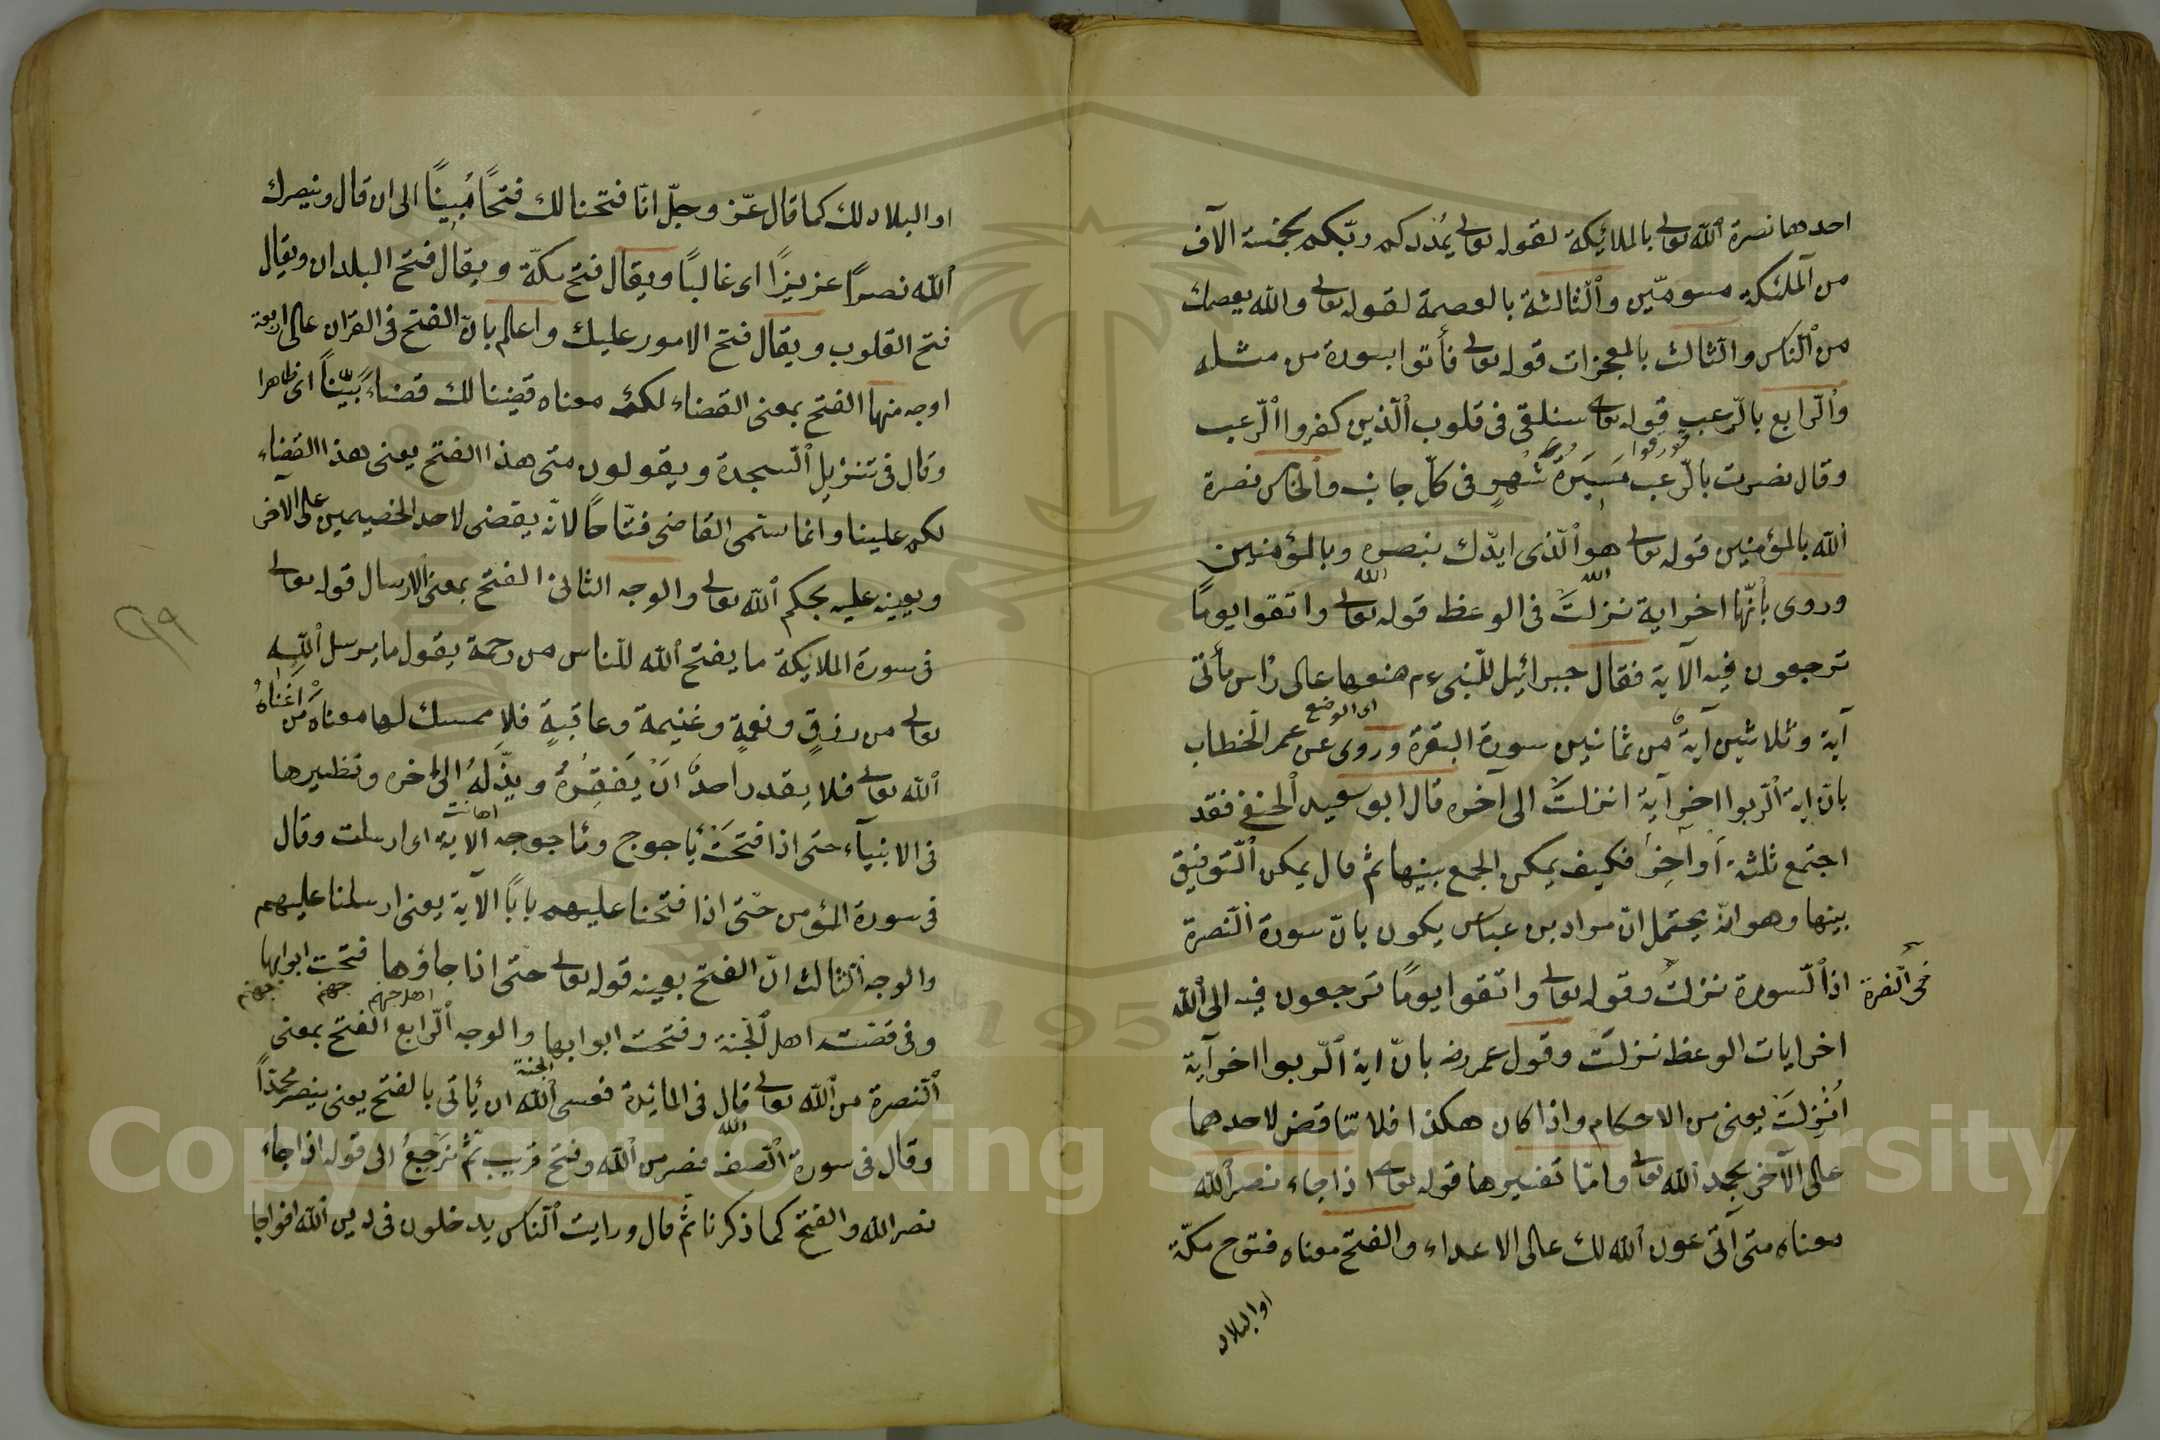 احدها نصرة الله تعالى بالملائكة لقوله تعالى يمددكم ربكم بخمسة الآف
من الملئكة مسومين والثالثة بالعصمة لقوله تعالى والله يعصمك
من الناس والثالث بالمعجزات قوله تعالى فأتوا بسورة من مثله
والرابع بالرعب قوله تعالى سنلقى فى قلوب الذين كفروا الرعب
وقال نصرت بالرعب مَسِيَرةَ شَهْرٍ فى كل جانب والخامس نصرة
الله بالمؤمنين قوله تعالى هو الذى ايدك بنصره وبالمؤمنين
وروى بأنها اخر اية نزلت فى الوعظ قوله تعالى واتقوا يومًا
ترجعون فيه الآية فقال جبرائيل للنبىءم ضعها على رأس مأتى
اى الوضع
آية وثلاثين آية من ثمانين سورة البقرة وروى عن عمر الخطاب
بان اية الربوا اخر آية انزلت الى آخره قال ابو سعيد الحنفى فقد
اجتمع ثلثة أواخِر فكيف يمكن الجمع بينها ثم قال يمكن التوفيق
بينها وهو انه يحتمل ان مراد بن عباس يكون بان سورة النصرة
اذ السورة نزلت وقوله تعالى واتقوا يومًا ترجعون فيه الى الله
اخر ايات الوعظ نزلت وقول عمر رضه بان اية الربوا اخر آية
اُنْزِلَتَ يعنى من الاحكام واذا كان هكذا فلا تناقض لاحدهما
على الآخر بحمد الله تعالى واما تفسيرها قوله تعالى اذا جاء نصر الله
معناه متى آتى عون الله لك على الاعداء والفتح معناه فتوح مكة
او البلاد
او البلاد لك كما قال عز وجل انا فتحنا لك فتحًا مُبينًا الى ان قال وينصرك
الله نصرًا عزيزًا اى غالبًا ويقال فتح مكة ويقال فتح البلدان ويقال
فتح القلوب ويقال فتح الامور عليك واعلم بان الفتح فى القران على اربعة
اوجه منها الفتح بمعنى القضاء لكم معناه قضينا لك قضاءً بَيّنًا اى ظاهرا
وقال فى تنزيل السجدة ويقولون متى هذا الفتح يعنى هذا القضاء
لكم علينا وانما سمى القاضى فتاحًا لانه يقضى لاحد الخصيمين على الآخر
ويعينه عليه بحكم الله تعالى والوجه الثانى الفتح بمعنى الارسال قوله تعالى
فى سورة الملايكة ما يفتح الله للناس من رحمة يقول ما يرسل الله
تعالى من رزقٍ ونعمةٍ وغنيمة وعاقبةٍ فلا ممسك لها معناه من اغناهُ
الله تعالى فلا يقدر احدٌ اَنْ يَفْقِرُهُ ويذّلهُ الى اخره ونظيرها
فى الانبياء حتى اذا فتحَتْ يأجوج ومأجوجه الآية اى ارسلت وقال
فى سورة المؤمن حتى اذا فتحنا عليهم بابًا الآية يعنى ارسلنا عليهم
والوجه الثالث ان الفتح بعينه قوله تعالى حتى اذا جاؤها فتحت ابوابها
اهل جهنم جهنم جهنم
وفى قصة اهل الجنة وفتحت ابوابها والوجه الرابع الفتح بمعنى
الجنة
النصرة من الله تعالى قال فى المائدة فعسى الله ان يأتى بالفتح يعنى بنصر محمدًا
وقال فى سورة الصف نصر من الله وفتح قريب ثم نَرَجِعُ الى قوله اذا جاء
نصر الله والفتح كما ذكرنا ثم قال ورايت الناس يدخلون فى دين الله افواجا
٩٩
Copyright © King Saud University
195